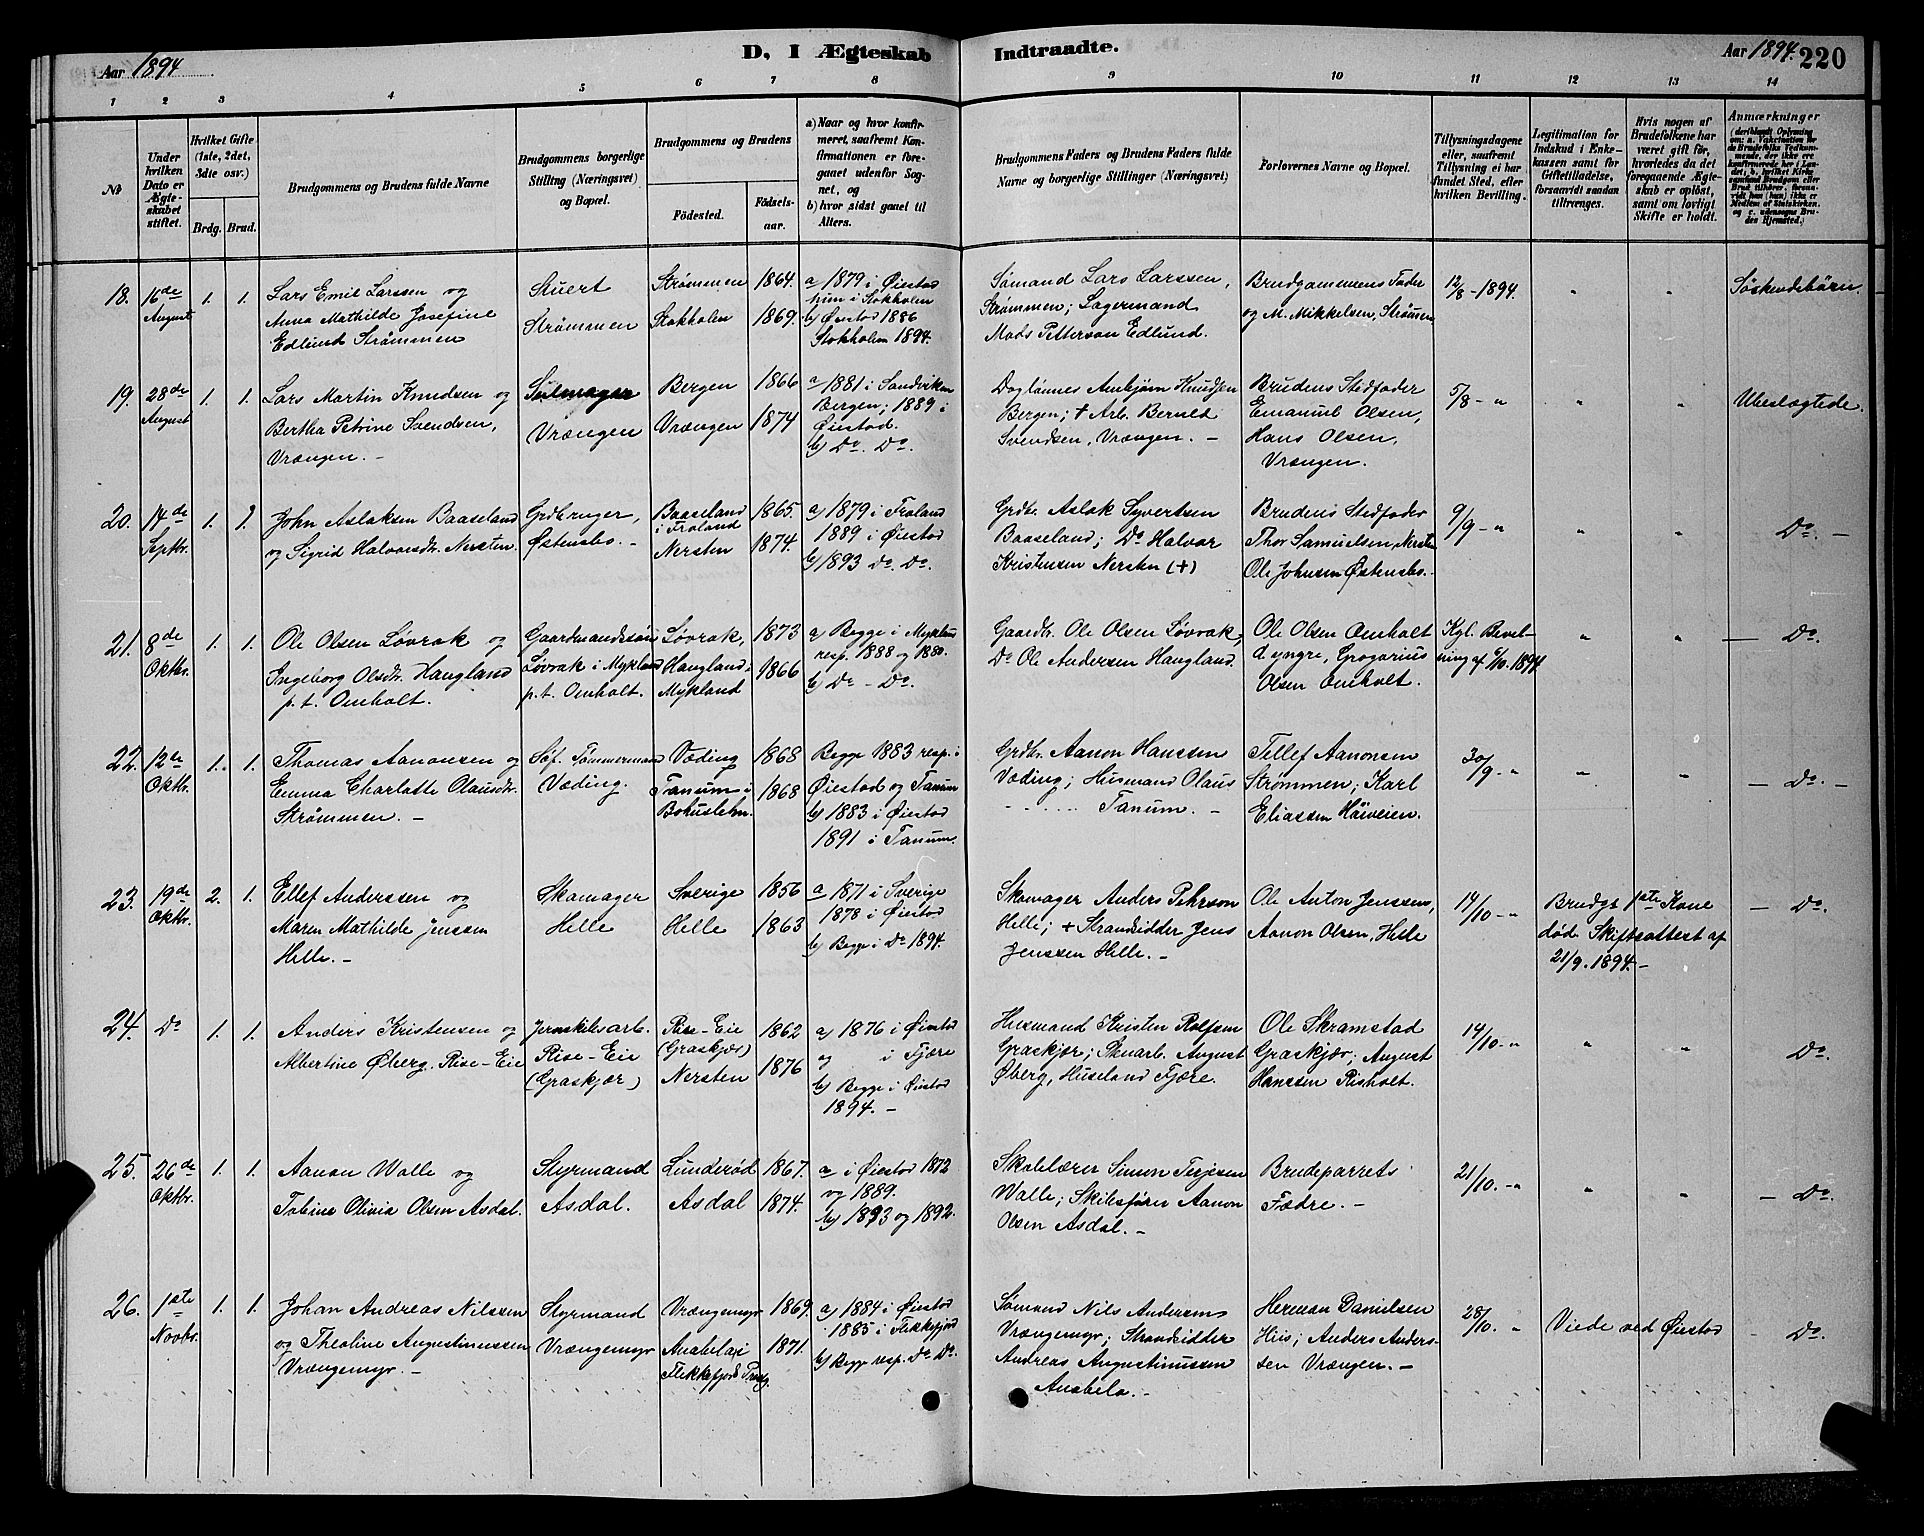 Aar 1894
D, I Ægteskab
Indtraadte.
Aar 1894. 220
1 2 3 4 5 6 7 8 9 10 11 12 13 14
№
Under hvilken Dato er Ægteskabet stiftet.
Hvilket Gifte (1ste, 2det, 3die osv.)
Brdg. Brud.
Brudgommens og Brudens fulde Navne
Brudgommens borgerlige Stilling (Næringsvei) og Bopæl.
Brudgommens og Brudens
Fødested. Fødselsaar.
a) Naar og hvor konfirmeret, saafremt Konfirmationen er foregaaet udenfor Sognet, og
b) hvor sidst gaaet til Alters.
Brudgommens Faders og Brudens Faders fulde Navne og borgerlige Stillinger (Næringsvei)
Forlovernes Navne og Bopæl.
Tillysningsdagene eller, saafremt Tillysning ei har fundet Sted, efter hvilken Bevilling.
Legitimation for Indskud i Enkekassen samt for Giftetilladelse, forsaavidt saadan tiltrænges.
Hvis nogen af Brudefolkene har været gift før, hvorledes da det foregaaende Ægteskab er opløst, samt om lovligt Skifte er holdt.
Anmærkninger
18. 16de August 1. 1.
Lars Emil Larssen og
Anna Mathilde Josefine
Edlund Strømmen
Stuert
Strømmen
Strømmen 1864.
Stokholm 1869.
a) 1879 i Øiestad
hun i Stokholm
b) Øiestad 1886
Stokholm 1894.
Sømand Lars Larssen,
Strømmen; Lagermand
Mads Petterson Edlund.
Brudgommens Fader
og M. Mikkelsen, Strømmen
12/8-1894. " "
Søskendebørn.
19. 28de August 1. 1.
Lars Martin Knudsen og
Bertha Petrine Svendsen,
Vrængen. -
Vrængen
Bergen 1866
Vrængen 1874
a) 1881 i Sandviken
Bergen; 1889 i
Øiestad.
b) Do. Do.
Daglønnes Anbjørn Knudsen
Bergen; + Arb. Bernld
Svendsen, Vrængen. -
Brudens Stedfader
Emanuel Olsen,
Hans Olsen,
Vrængen.
5/8- " " "
Ubeslægtede.
20. 14de Septbr. 1. 1.
John Aslaksen Baaseland
og Sigrid Halvorsdtr. Nersten.
Grdbruger,
Østensbø. -
Baaseland 1865.
i Froland
Nersten 1874.
a) 1879 i Froland
1889 i Øiestad
b) 1893 Do. Do.
Grdbr. Aslak Syvertsen
Baaseland; Do Halvor
Kristensen Nersten (+)
Brudens Stedfader
Thor Samuelsen, Nersten
Ole Johnsen Østensbø.
9/9- " " "
Do. -
21. 8de Oktbr. 1. 1.
Ole Olsen Løvrak og
Ingeborg Olsdtr. Haugland
p.t. Omholt.
Gaardmandssøn
Løvrak i Mykland
p.t. Omholt.
Løvrak, 1873
Haugland i 1866
Mykland
a) Begge i Mykland
resp. 1888 og 1880.
b) Do - Do.
Gaardbr. Ole Olsen Løvrak,
Do Ole Andersen Haugland.
Ole Olsen Omholt
d. yngre, Grogarius
Olsen Omholt.
Kgl. Bevilning af 6/10. 1894 " "
- Do.
22. 12te Oktbr. 1. 1.
Thomas Aanonsen og
Emma Charlotte Olausdtr.
Strømmen. -
Søf. Tømmermand
Væding.
Væding 1868
Tanum i 1868
Bohuslehn.
Begge 1883 resp. i
Øiestad og Tanum
b) 1883 i Øiestad
1891 i Tanum.
Grdbr. Aanon Hanssen
Væding; Husmand Olaus
- ..... Tanum. -
Tellef Aanonsen
Strømmen; Karl
Eliassen Høiveien.
30/9. " " "
- Do. -
23. 19de Oktbr. 2. 1.
Ellef Anderssen og
Maren Mathilde Jenssen
Helle. -
Skomager
Helle
Sverige 1856
Helle 1863
a 1871 i Sverige
1878 i Øiestad
b) Begge i Do 1894.
Skomager Anders Pehrson
Helle; + Strandsidder Jens
Jenssen Helle. -
Ole Anton Jenssen,
Aanon Olsen, Helle
14/10- "
Brudgs 1ste Kone
død. Skifteattest af
21/9. 1894. -
- Do.
24. Do 1. 1.
Anders Kristensen og
Albertine Øberg. Rise-Eie
Jernskibsarb.
Rise-Eie
(Graskjær)
Rise-Eie 1862
(Graskjær)
Nersten 1876
a) 1876 i Øiestad
og i Fjære
b) Begge i Øiestad
1894. -
Husmand Kristen Rolfsen
Graskjær; Skuarb. August
Øberg, Huseland Fjære.
Ole Skramstad
Graskjær; August
Hanssen Risholt.
14/10- " " "
Do.
25. 26de Oktbr. 1. 1.
Aanon Walle og
Tobine Olivia Olsen Asdal.
Styrmand
Asdal.
Lunderød 1867.
Asdal 1874.
a i Øiestad 1872
og 1889.
b) 1893 og 1892.
Skolelærer Simon Terjesen
Walle; Skibsfører Aanon
Olsen Asdal. -
Brudeparrets
Fædre. -
21/10. - " " "
- Do.
26. 1ste Novbr. 1. 1.
Johan Andreas Nilssen
og Theoline Augustinussen
Vrængemyr. -
Styrmand
Vrængemyr
Vrængemyr 1869.
Anabeløi 1871.
Flekkefjords Prstg.
a) 1884 i Øiestad
1885 i Flekkefjord
b) Begge resp. Do Do.
Sømand Nils Andersens
Vrængemyr; Strandsidder
Andreas Augustinussen
Anabelø. -
Herman Danielsen
Hiis; Anders Anderssen Vrængen. -
28/10. "
Viede ved Øiestad
- Do.